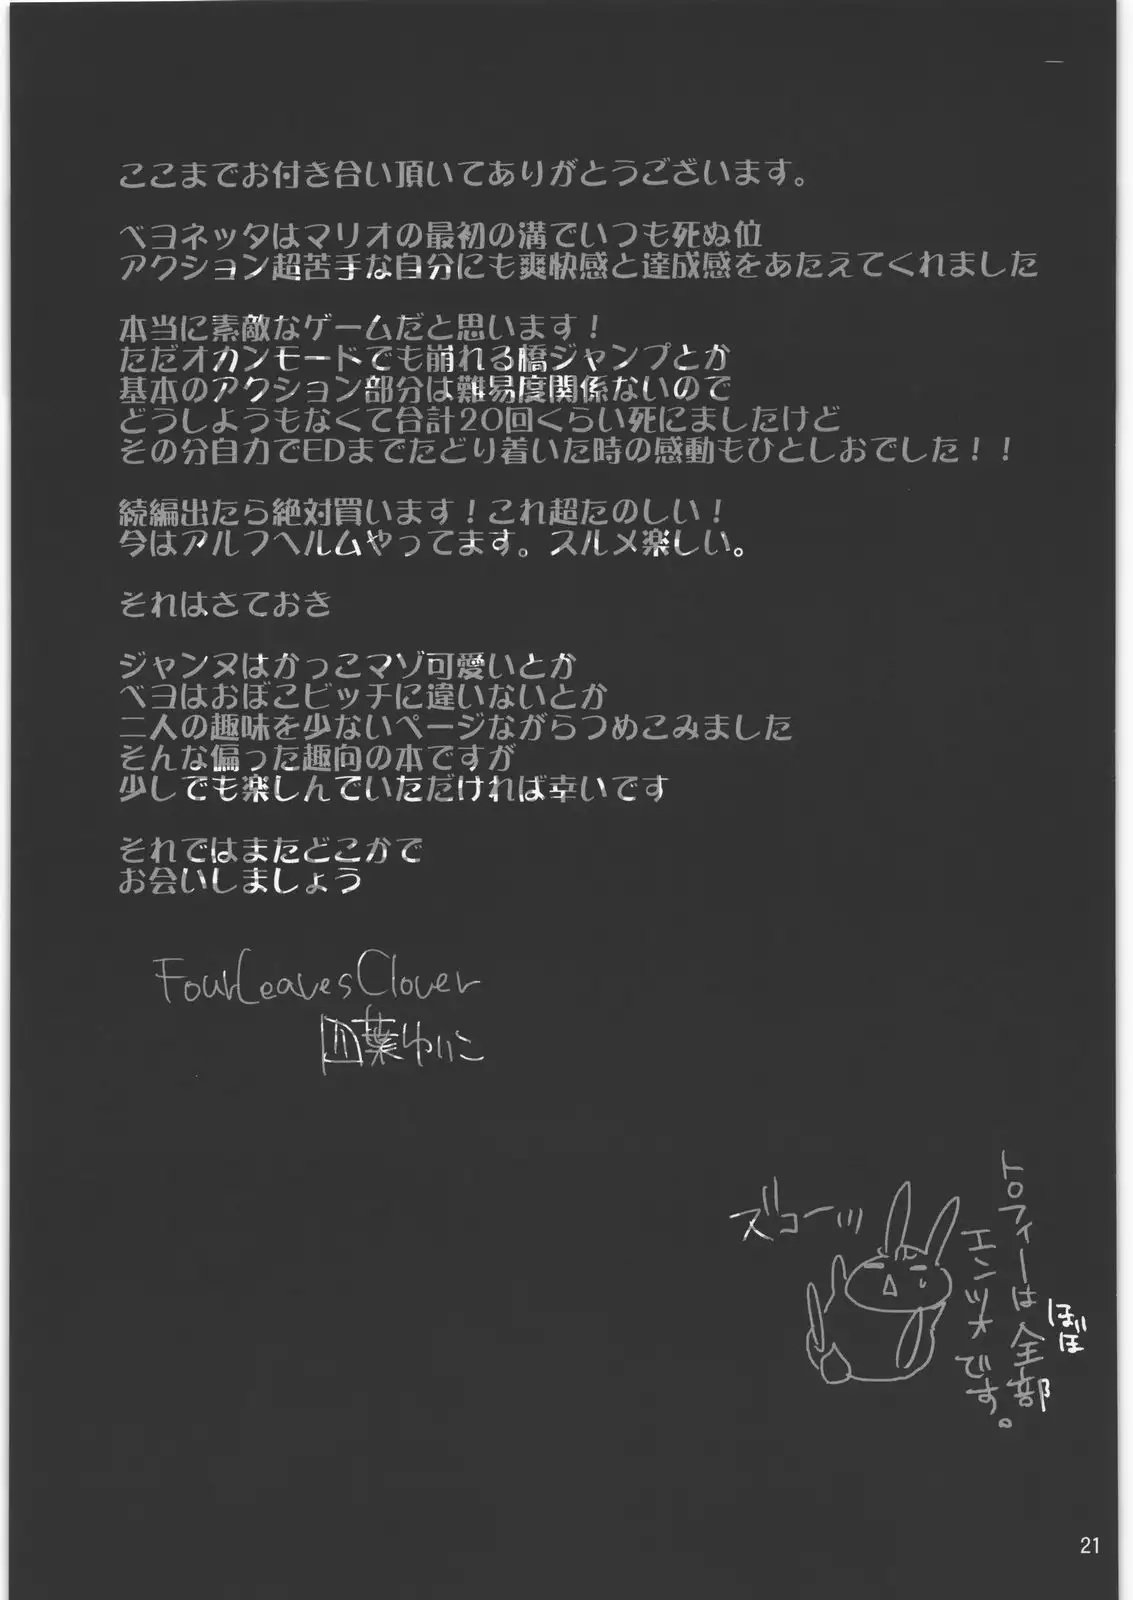 ここまでお付き合い頂いてありがとうございます。
ベヨネッタはマリオの最初の溝でいつも死ぬ位
アクション超苦手な自分にも爽快感と達成感をあたえてくれました
本当に素敵なゲームだと思います！
ただオカンモードでも崩れる橋ジャンプとか
基本のアクション部分は難易度関係ないので
どうしようもなくて合計20回くらい死にましたけど
その分自力でEDまでたどり着いた時の感動もひとしおでした！！
続編出たら絶対買います！これ超たのしい！
今はアルフヘルムやってます。スルメ楽しい。
それはさておき
ジャンヌはかっこマゾ可愛いとか
ベヨはおぼこビッチに違いないとか
二人の趣味を少ないページながらつめこみました
そんな偏った趣向の本ですが
少しでも楽しんでいただければ幸いです
それではまたどこかで
お会いしましょう
FourLeavesClover
四葉ゆいこ
トロフィーは全部
ほぼ
エンツオです。
ズコーッ
21